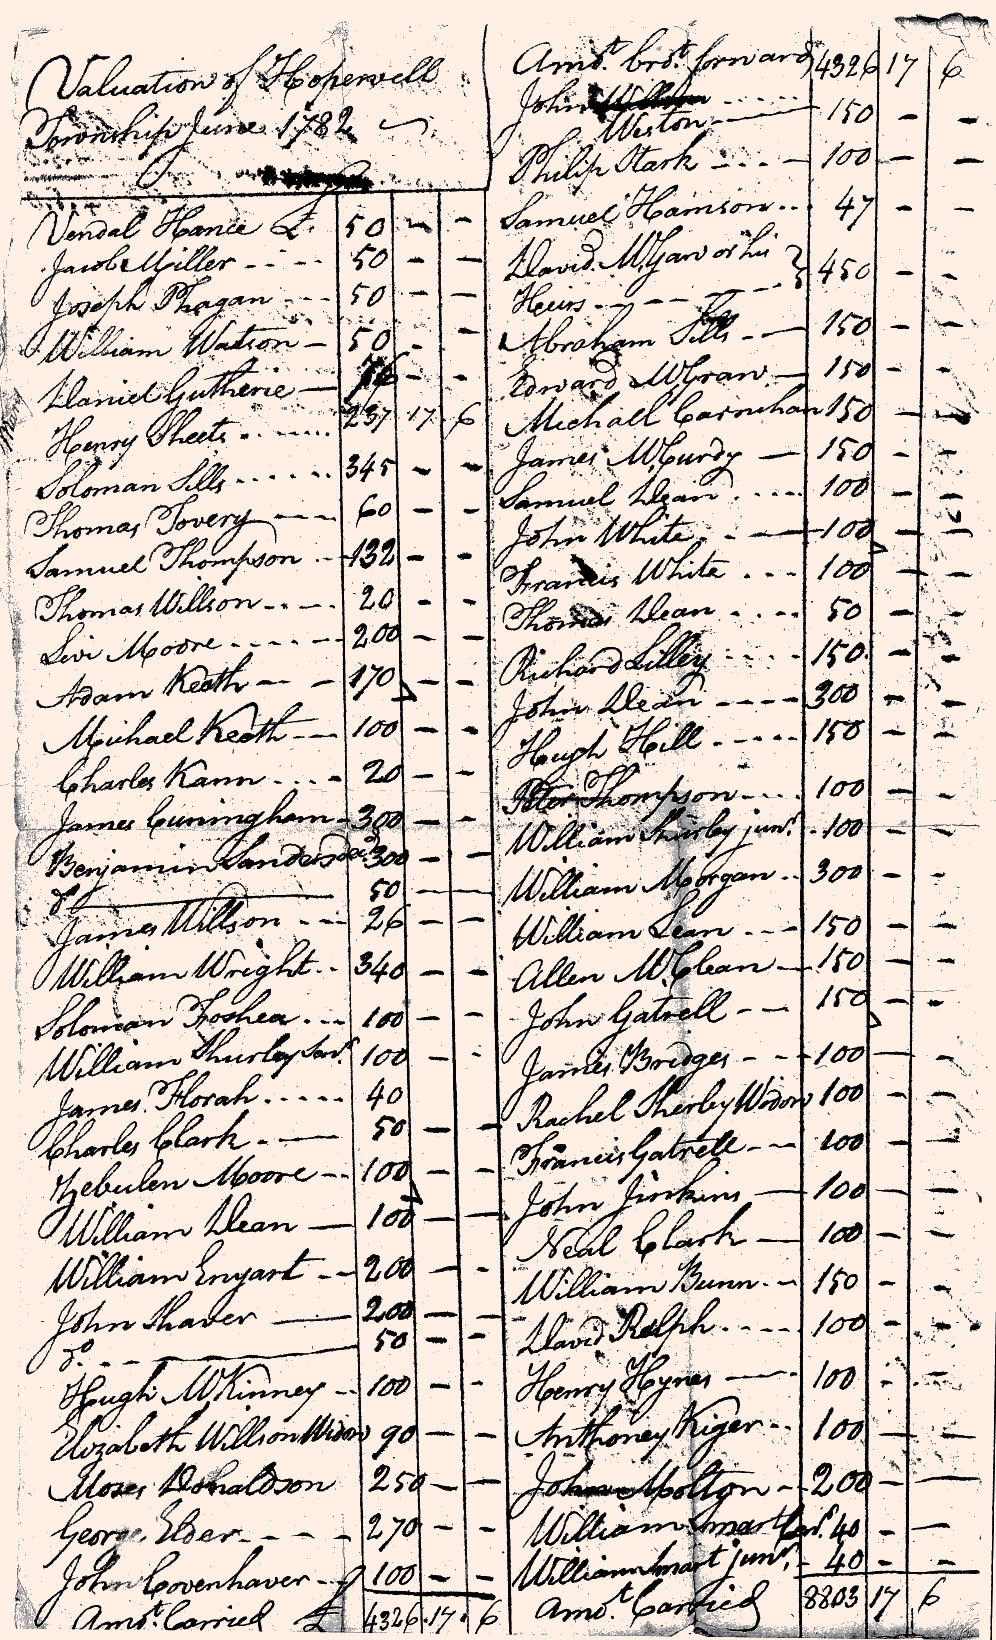 Valuation of Hopewell
Township June 1782
Vendal Hance £. 50 - -
Jacob Miller 50 - -
Joseph Phagan 50 - -
William Watson 50 - -
Daniel Gutherie - -
Henry Sheets 237 17 6
Soloman Sills 345 - -
Thomas Tovery 60 - -
Samuel Thompson 132 - -
Thomas Willson 20 - -
Livi Moore 200 - -
Adam Keath 170 - -
Michael Keath 100 - -
Charles Kann 20 - -
James Cuningham 300 - -
Benjamin Sanders 300 - -
do 50 - -
James Willson 26 - -
William Wright 340 - -
Soloman Foshea 100 - -
William Shurley Senr. 100 - -
James Florah 40
Charles Clark 50 - -
Zebulen Moore 100 - -
William Dean 100 - -
William Enyart 200 - -
John Shaver 200 - -
do. 50 - -
Hugh McKinney 100 - -
Elizabeth Willson Widow 90 - -
Moses Donaldson 250 - -
George Elder 270 - -
John Covenhaver 100 - -
Amot. Carried £ 4326 17 6
Amot. brot. forward 4326 17 6
John
Weston 150 - -
Philip Stark 100 - -
Samuel Hamson 47 - -
David McGaw or his
Heirs 450 - -
Abraham Sills 150 - -
Edward McGraw 150 - -
Michall Carnuhan 150 - -
James McCurdy 150 - -
Samuel Dean 100 - -
John White 100 - -
Francis White 100 - -
Thomas Dean 50 - -
Richard Lilley 150 - -
John Dean 300 - -
Hugh Hill 150 - -
Peter Thompson 100 - -
William Shurley junr. 100 - -
William Morgan 300 - -
William Lean 150 - -
Allen McClean 150 - -
John Gatrell 150 - -
James Bridges 100 - -
Rachel Sherley Widow 100 - -
Francis Gatrell 100 - -
John Jinkins 100 - -
Neal Clark 100 - -
William Bunn 150 - -
David Ralph 100 - -
Henry Hynes 100 - -
Anthoney Kiger 100 - -
John Molton 200 - -
William Smart Senr. 40 - -
William Smart junr. 40 - -
Amot. Carried 8803 17 6